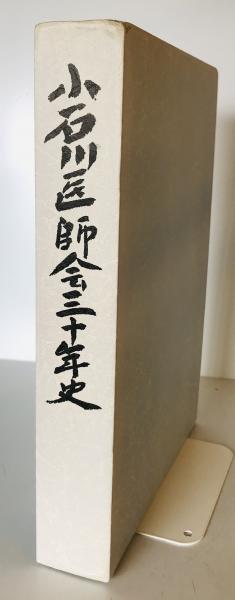 小石川医師会三十年史